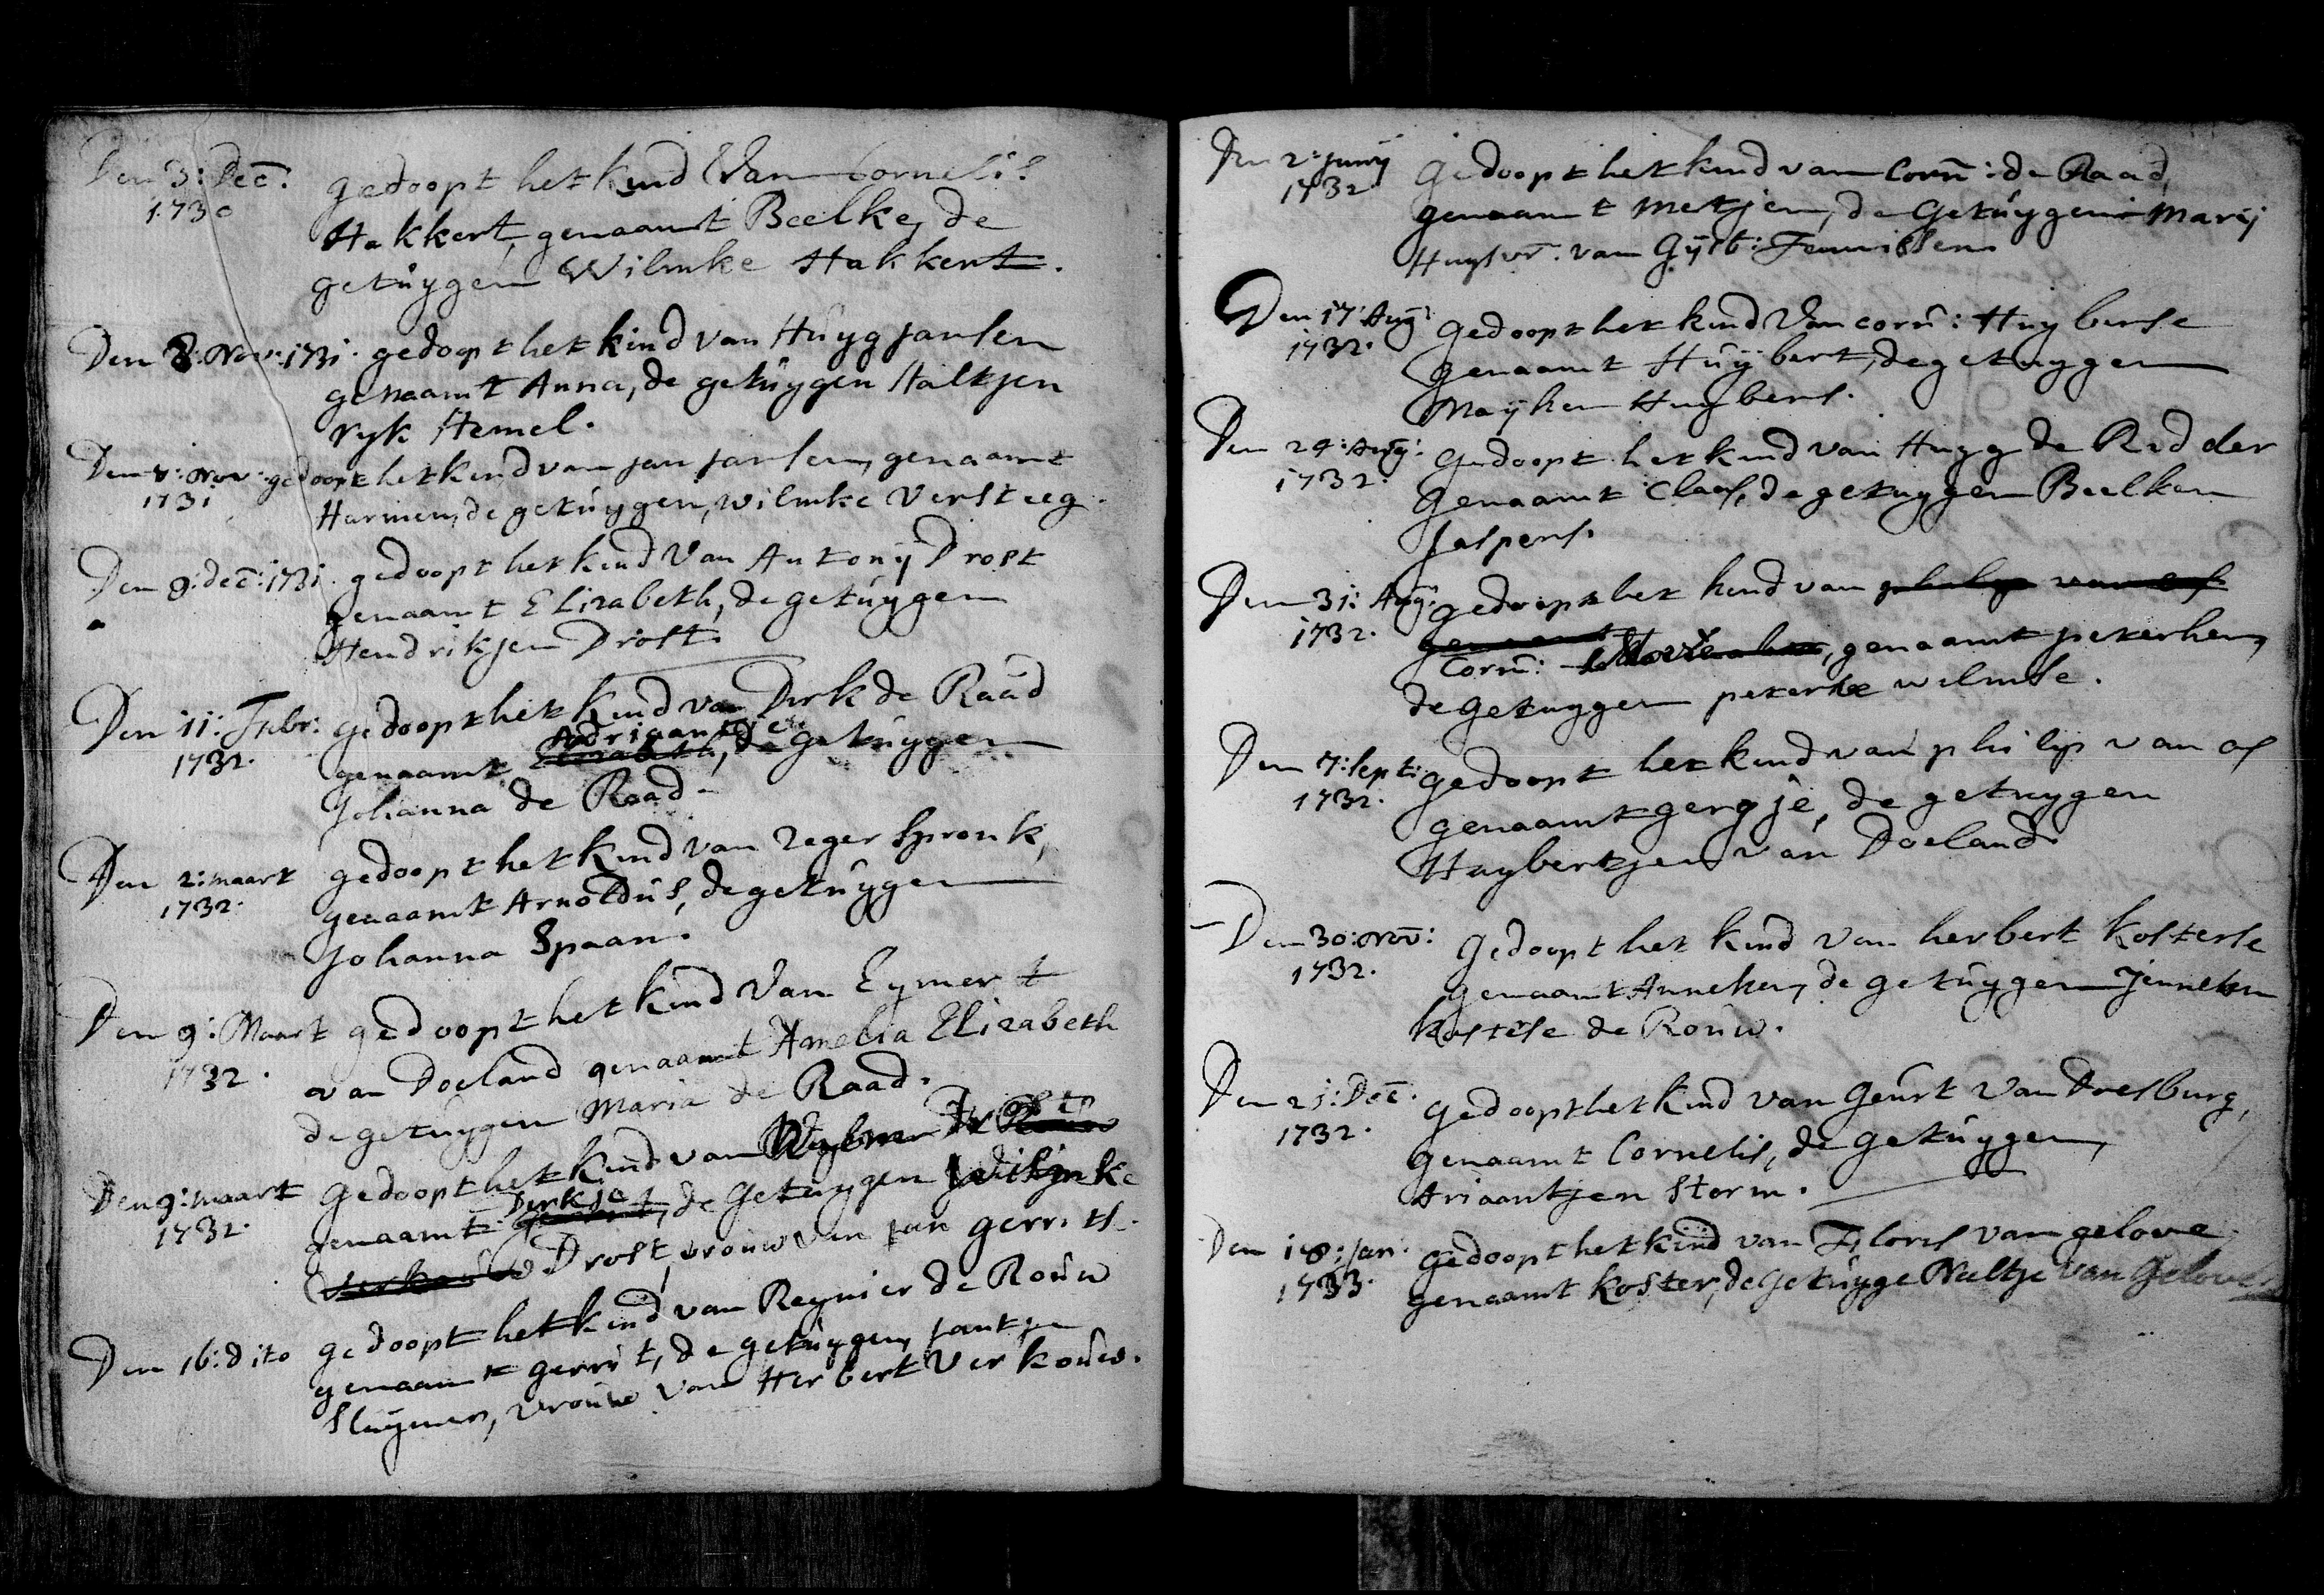 Den 3: Dec̄:
1730
gedoopt het kind Van Cornelis
Hakkert, genaamt Beelke, de
getuÿgen Wilmke Hakkert.
Den 8: Nov: 1731. gedoopt het kind van Huÿg Jansen
genaamt Anna, de getuÿgen Aaltjen
ryk Hemel.
Den 8: Nov: gedoopt het kind van Jan Jansen, genaamt
1731
Harmen, de getuÿgen, wilmke Versteeg.
Den 9: dec̄: 1731. gedoopt het kind Van Antonÿ Drost
genaamt Elizabeth, de getuÿgen
Hendrikjen Drost.
Den 11: Febr: gedoopt het kind van Dirk de Raad
1732.
Adriaantje
genaamt Elizabeth, de getuÿgen
Johanna de Raad.
Den 2: maart gedoopt het kind van Zeger Spronk,
1732.
genaamt Arnoldus, de getuÿgen
Johanna Spaan.
Den 9: Maart gedoopt het kind Van Eymert
1732.
van Doeland genaamt Amelia Elizabeth
de getuygen Maria de Raad.
Den 9: maart gedoopt het kind van Drost
1732.
Dirkje
genaamt, de getuygen Wilmke
Verkouw Drost, vrouw van Jan gerrits.
Den 16: dito gedoopt het kind van Reynier de Rouw
genaamt gerrit, de getuÿgen, Jantjen
Sluÿmer, vrouw van Herbert Verkouw.
Den 2: Junÿ
1732.
gedoopt het kind van Corn̄: de Raad,
genaamt Metjen, de Getuÿgen Marij
Huysvr. van Gÿsb: Teunissen
Den 17: Aug:
1732.
gedoopt het kind Van corn̄: Huyberse
genaamt Huÿbert, de getuygen
Maÿken Huyberts.
Den 24: Aug:
1732.
gedoopt het kind van Huyg de Ridder
genaamt Claas, de getuygen Beelken
Jaspers.
Den 31: Aug: gedoopt het kind van philip van os
1732.
genaamt
Corn̄:, genaamt peterken,
de getuygen peterke wilmse.
Den 7: sept: gedoopt het kind van philip van os
1732.
genaamt gergje, de getuygen
Huybertjen van Doeland.
Den 30: Nov̄:
1732.
gedoopt het kind van herbert kosterse
genaamt Anneken, de getuÿgen Jenneken
kosterse de Rouw.
Den 21: Dec̄.
1732.
gedoopt het kind van Geurt van Doesburg,
genaamt Cornelis, de getuÿgen,
Ariaantjen Storm.
Den 18: Jan:
1733.
gedoopt het kind van Floris van gelove
genaamt koster, de getuÿge Neeltje van Gelove